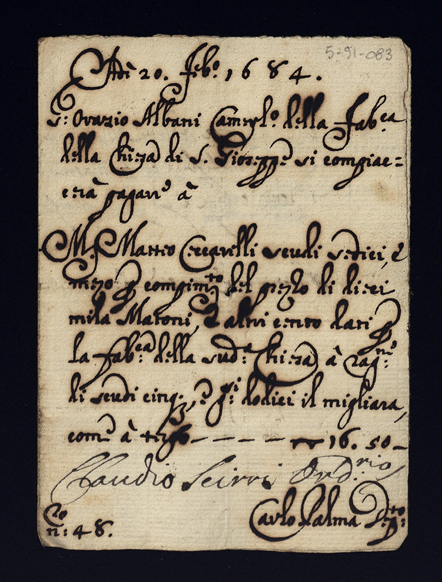 5-91-083
Adì 20. Feb.o 1684.
S: Orazio Albani Camerl.o della Fab.ca
della Chiesa di S. Gioseppe si compiac=
erà pagare à
M.o Matteo Ceccarelli scudi sedici, e
mezo p compim.to del prezzo di dieci
mila Matoni, e altri cento dati p
la fab.ca della sud.a Chiesa à rag.ne
di scudi cinq., e dodici il migliara,
come à tergo — — — — 16. 50 —
Claudio Scirri Ord.rio
Carlo Palma
n: 48.